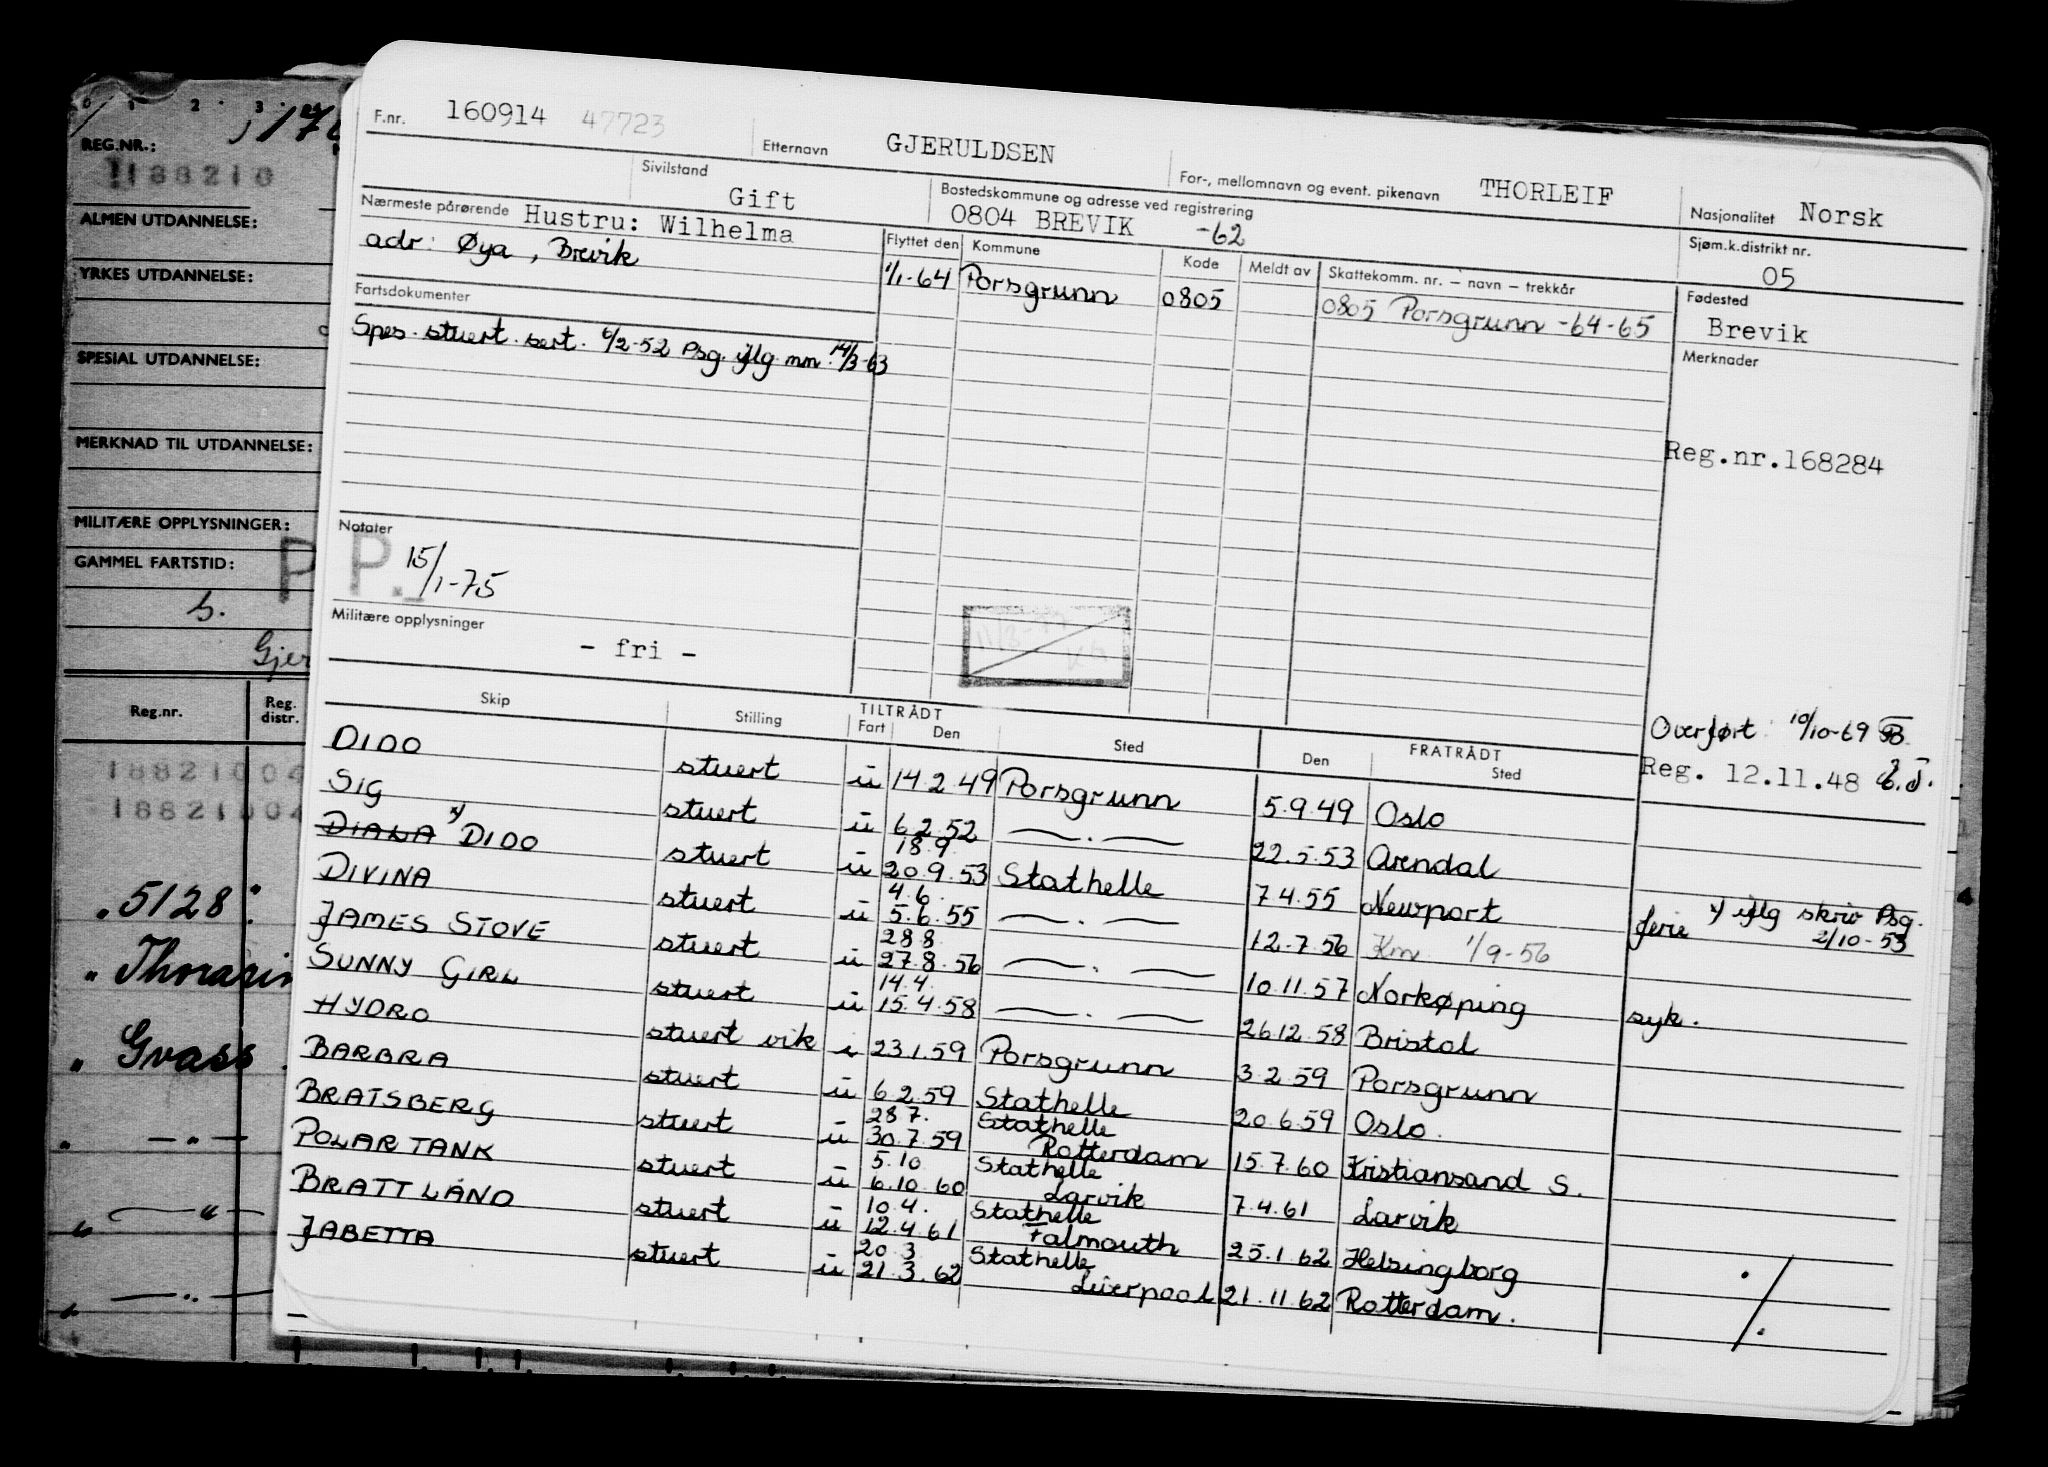 F.nr. 160914 47723 Etternavn GJERULDSEN For-, mellomnavn og event. pikenavn THORLEIF Nasjonalitet Norsk
Sivilstand Gift Bostedskommune og adresse ved registrering 0804 BREVIK -62 Sjøm.k.distrikt nr. 05
Nærmeste pårørende Hustru: Wilhelma
adr: Øya, Brevik
Flyttet den Kommune Kode Meldt av Skattekomm. nr. – navn – trekkår
1/1-64 Porsgrunn 0805 0805 Porsgrunn -64-65
Fødested
Brevik
Merknader
Fartsdokumenter
Spes. stuert. sert. 6/2-52 Psg. iflg. mn. 14/3-63
Reg.nr.168284
Notater
P. 15/1-75
Militære opplysninger
- fri -
Overført: 10/10-69
Reg. 12.11.48
Skip Stilling TILTRÅDT Fart Den Sted FRATRÅDT Den Sted
DIDO stuert u 14.2.49 Porsgrunn 5.9.49 Oslo
SIG stuert u 6.2.52 —.— 22.5.53 Arendal
DIANA x) DIDO stuert u 18.9. 20.9.53 Stathelle 7.4.55 Newport x) iflg skriv Psg. 2/10-53
DIVINA stuert u 4.6. 5.6.55 —.— 12.7.56 Km 1/9-56 ferie
JAMES STOVE stuert u 28.8. 27.8.56 —.— 10.11.57 Norkøping
SUNNY GIRL stuert u 14.4. 15.4.58 —.— 26.12.58 Bristol syk.
HYDRO stuert vik i 23.1.59 Porsgrunn 3.2.59 Porsgrunn
BARBRA stuert u 6.2.59 Stathelle 20.6.59 Oslo.
BRATSBERG stuert u 28.7. 30.7.59 Stathelle Rotterdam 15.7.60 Kristiansand S.
POLARTANK stuert u 5.10. 6.10.60 Stathelle Larvik 7.4.61 Larvik
BRATTLAND stuert u 10.4. 12.4.61 Stathelle Falmouth 25.1.62 Helsingborg
JABETTA stuert u 20.3. 21.3.62 Stathelle Liverpool 21.11.62 Rotterdam.
REG.NR.:
1188210
ALMEN UTDANNELSE:
YRKES UTDANNELSE:
SPESIAL UTDANNELSE:
MERKNAD TIL UTDANNELSE:
MILITÆRE OPPLYSNINGER:
GAMMEL FARTSTID:
P
Gjer
Reg.nr. Reg. distr.
18821004
18821004
"5128"